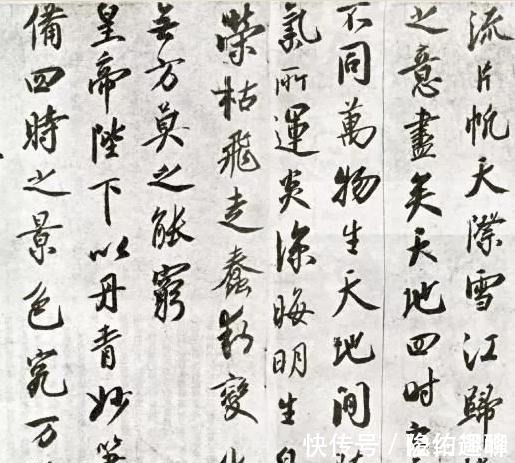 流片帆天際雪江歸
之意盡矣天地四时
不同萬物生天地間
氣所運炎涼晦明生
榮枯飛走蠢動變化
無方莫之能窮
皇帝陛下以丹青妙筆
備四時之景色究万
快传号 / 隐约趣